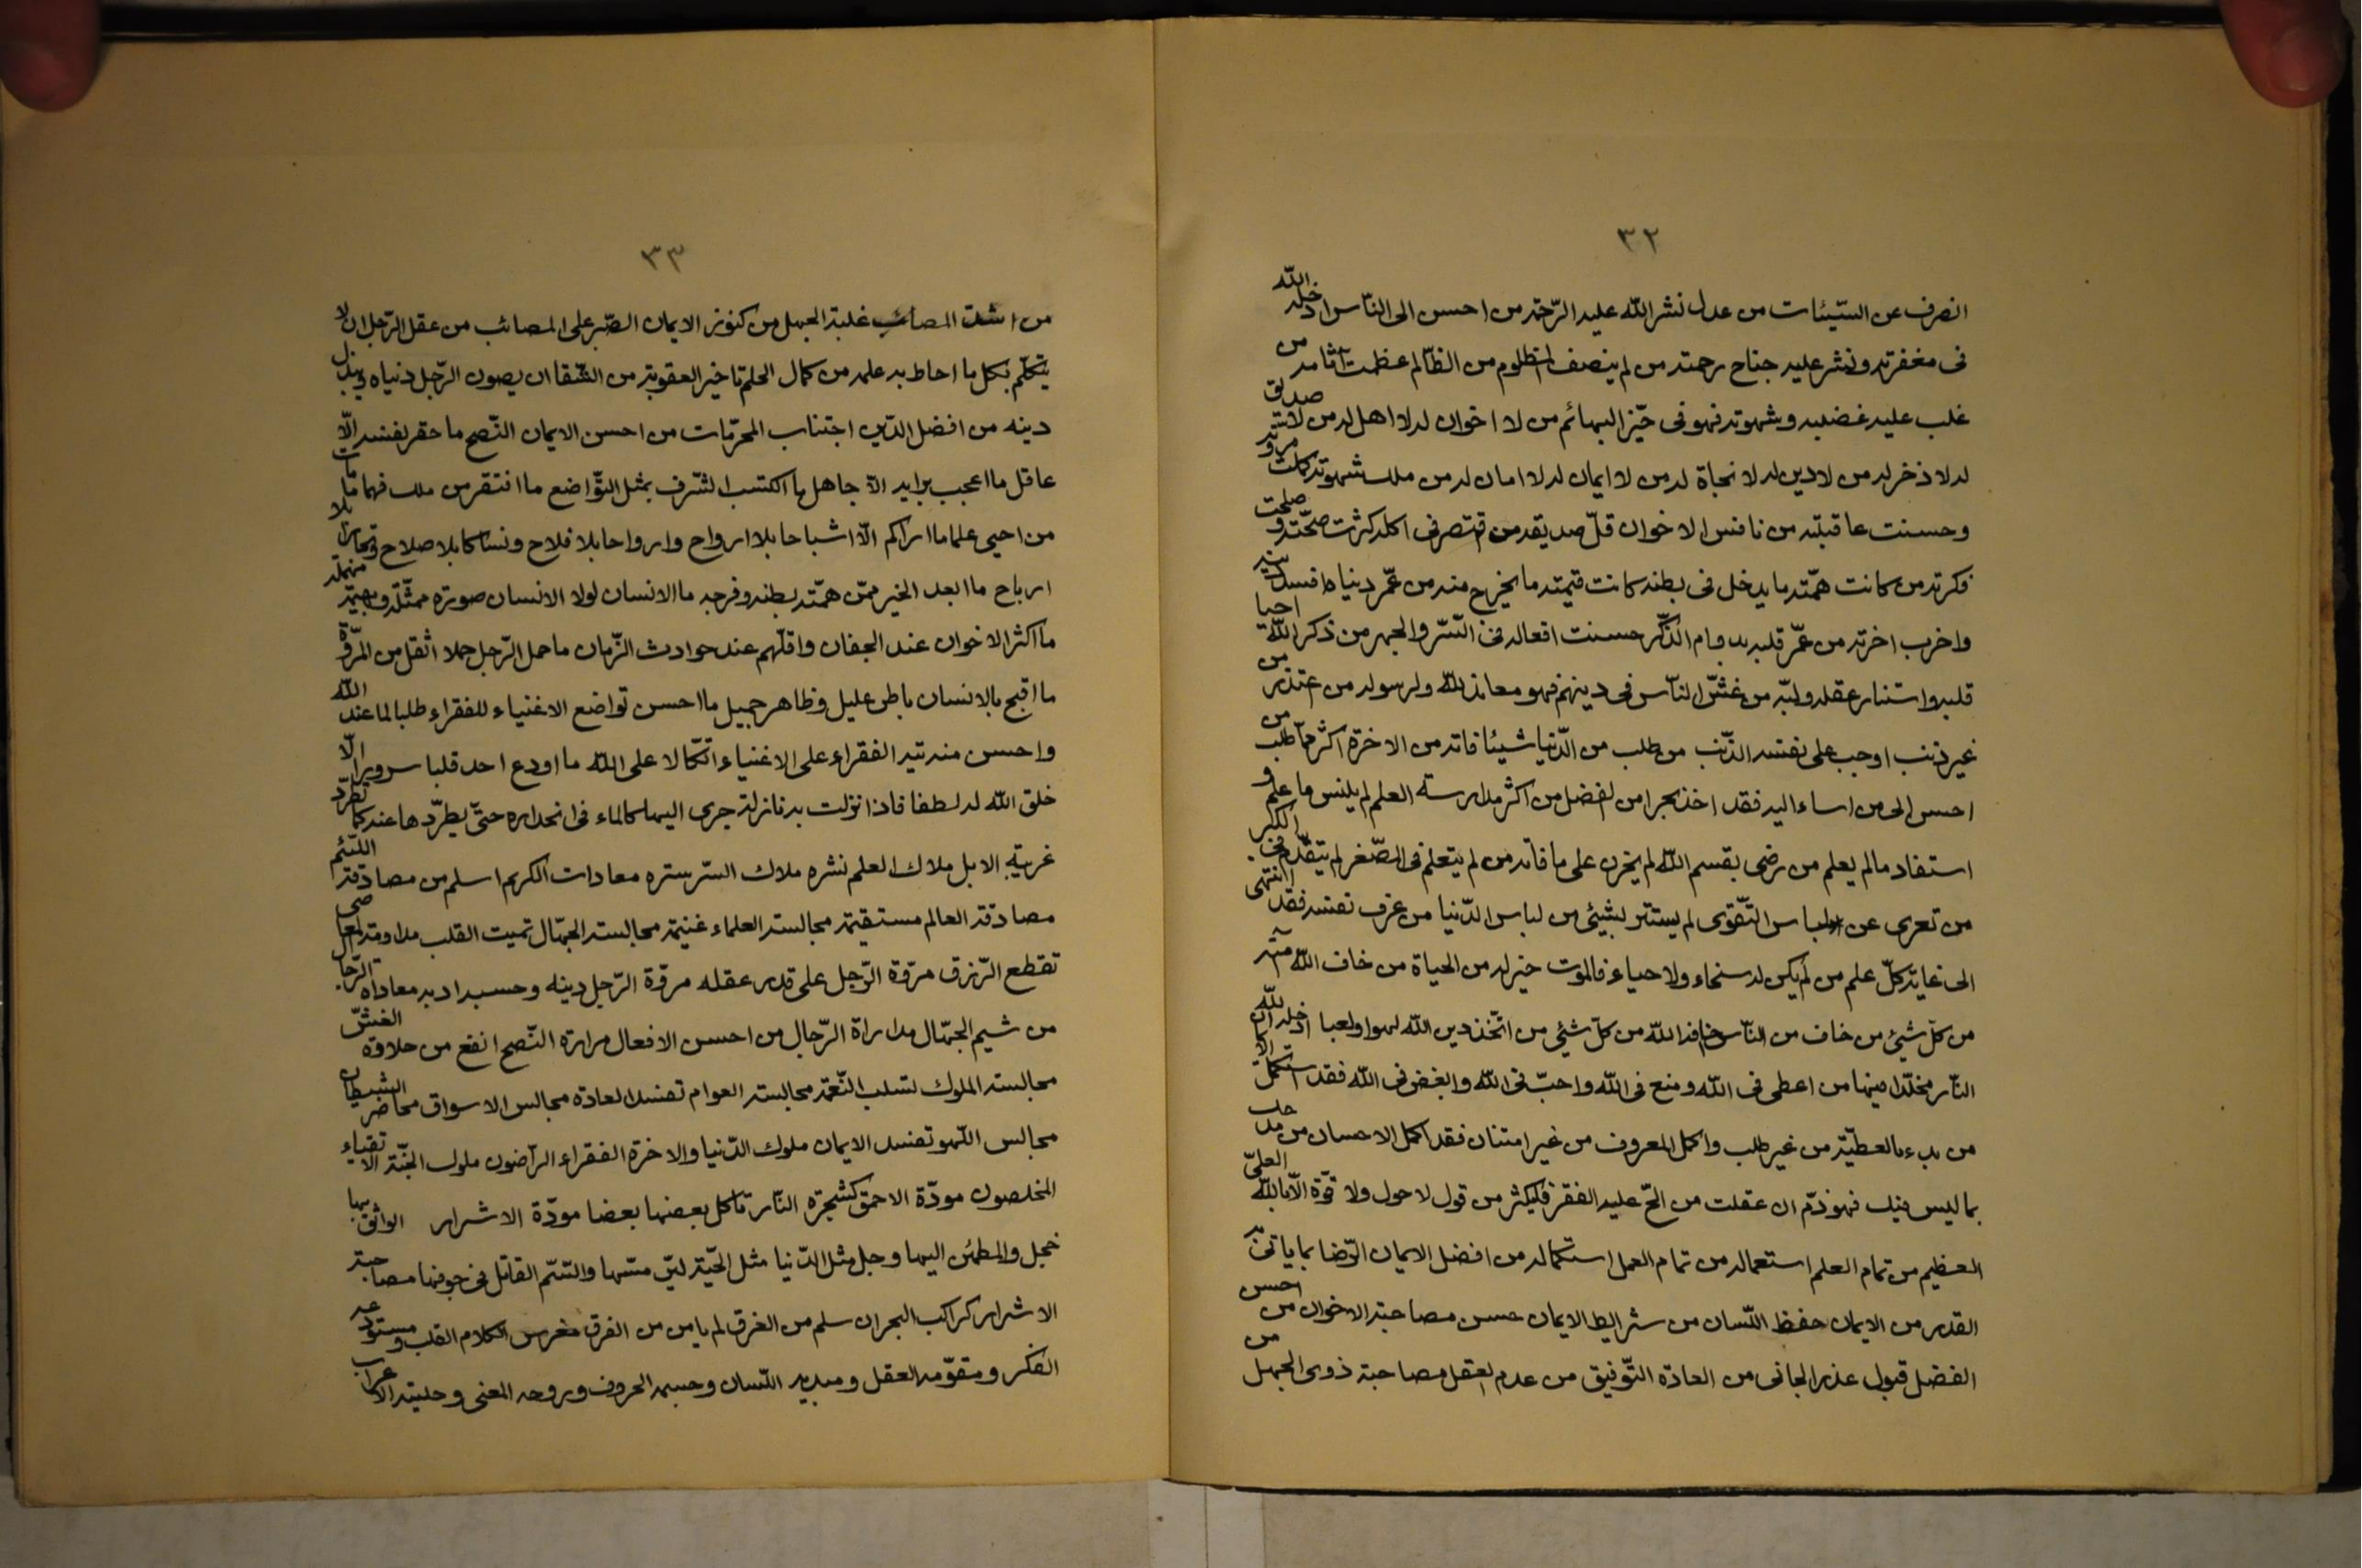 ٣٢
انصرف عن السّيئات من عدل نشر الله عليه الرّحمة من احسن الى النّاس ادخله الله
فى مغفرته ونشر عليه جناح رحمته من لم ينصف المظلوم من الظّالم عظمت آثامه من
غلب عليه غضبه وشهوته فهو فى حيّز البهائم من لا اخوان له لا اهل له من لا صديق
له لا ذخر له من لا دين له لا نجاة له من لا ايمان له لا امان له من ملك شهوته كملت مروّته
وحسنت عاقبته من نافس الاخوان قلّ صديقه من قتصر فى اكله كثرت صحّته و صلحت
فكرته من كانت همّته ما يدخل فى بطنه كانت قيمته ما يخرج منه من عمّر دنياه افسد دينه
واخرب اخرته من عمّر قلبه بدوام الذّكر حسنت افعاله فى السّر والجهر من ذكر الله احيا
قلبه واستنار عقله ولبّه من غشّ النّاس فى دينهم فهو معاند لله ولرسوله من اعتذر من
غير ذنب اوجب على نفسه الذّنب من طلب من الدّنيا شيئا فاته من الاخرة اكثر ممّا طلب من
احسن الى من اساء اليه فقد اخذ بجرامن الفضل من اكثر مدارسة العلم لم ينس ما علم و
استفاد مالم يعلم من رضى بقسم الله لم يحزن على ما فاته من لم يتعلم فى الصّغر لم يتقدّم فى الكبر
من تعرى عن لباس التّقوى لم يستتر بشيئ من لباس الدّنيا من عرف نفسه فقد انتهى
الى غاية كلّ علم من لم يكن له سخاء ولا حياء فالموت خير له من الحياة من خاف الله آمنه
من كلّ شيئ من خاف من النّاس خافه الله من كلّ شيئ من اتّخذ دين الله لهوا ولعبا ادخله الله
النّار مخلّدا فيها من اعطى فى الله ومنع فى الله واحبّ فى الله وابغض فى الله فقد استكمل الايمان
من بدء بالعطيّة من غير طلب واكمل المعروف من غير امتنان فقد اكمل الاحسان من مدحك
بما ليس فيك فهو ذمّ ان عقلت من الحّ عليه الفقر فليكثر من قول لا حول ولا قوّة الّا بالله العلىّ
العظيم من تمام العلم استعماله من تمام العمل استكماله من افضل الايمان الرّضا بما ياتى به
القدر من الايمان حفظ اللّسان من شرايط الايمان حسن مصاحبة الاخوان من احسن
الفضل قبول عذر الجانى من العادة التّوفيق من عدم العقل مصاحبة ذوى الجهل من
٣٣
من اشدّ المصائب غلبة الجهل من كنوز الايمان الصّبر على المصائب من عقل الرّجل ان لا
يتكلّم بكل ما احاط به علمه من كمال الحلم تاخير العقوبة من الشّقا ان يصون الرّجل دنياه ويبذل
دينه من افضل الدّين اجتناب المحرّمات من احسن الايمان النّصح ما حقر نفسه الّا
عاقل ما اعجب برايه الّا جاهل ما اكتسب الشّرف بمثل التّواضع ما افتقر من ملك فهما ما مات
من احيى علما ما اراكم الّا اشباحا بلا ارواح وارواحا بلا فلاح ونسّاكا بلا صلاح وتجارا بلا
ارباح ما ابعد الخير ممّن همّته بطنه وفرجه ما الانسان لولا الانسان صورة ممثّلة وبهيمة مهملة
ما اكثر الاخوان عند الجفان واقلّهم عند حوادث الزّمان ما حمل الرّجل حملا اثقل من المروّة
ما اقبح بالانسان باطن عليل وظاهر جميل ما احسن تواضع الاغنياء للفقراء طلبا لما عند الله
واحسن منه تيه الفقراء على الاغنياء اتّكالا على الله ما اودع احد قلبا سرورا الّا
خلق الله له لطفا فاذا نزلت به نازلة جرى اليها كالماء فى انحداره حتّى يطرّدها عنه كما تطرّد
غريبة الابل ملاك العلم نشره ملاك السّر ستره معادات الكريم اسلم من مصادقة اللّئيم
مصادقة العالم مستقيمة مجالسة العلماء غنيمة مجالسة الجهّال تميت القلب مداومة المعاصى
تقطع الرّزق مروّة الرّجل على قدر عقله مروّة الرّجل دينه وحسبه ادبه معاداة الرّجال
من شيم الجهّال مداراة الرّجال من احسن الافعال مرارة النّصح انفع من حلاوة الغشّ
مجالسة الملوك تسلب النّعمة مجالسة العوام تفسد العادة مجالس الاسواق محاضر الشيطان
مجالس اللّهو تفسد الايمان ملوك الدّنيا والاخرة الفقراء الرّاضون ملوك الجنّة الاتقياء
المخلصون مودّة الاحمق كشجرة النّار تاكل بعضها بعضا مودّة الاشرار الواثق بها
خجل والمطمئن اليها وجل مثل الدّنيا مثل الحيّة ليّن مسّها والسّم القاتل فى جوفها مصاحبة
الاشرار كراكب البحر ان سلم من الغرق لم يامن من الفرق مغرس الكلام القلب ومستودعه
الفكر ومقوّمه العقل ومبديه اللّسان وجسمه الحروف وروحه المعنى وحليته الاعراب